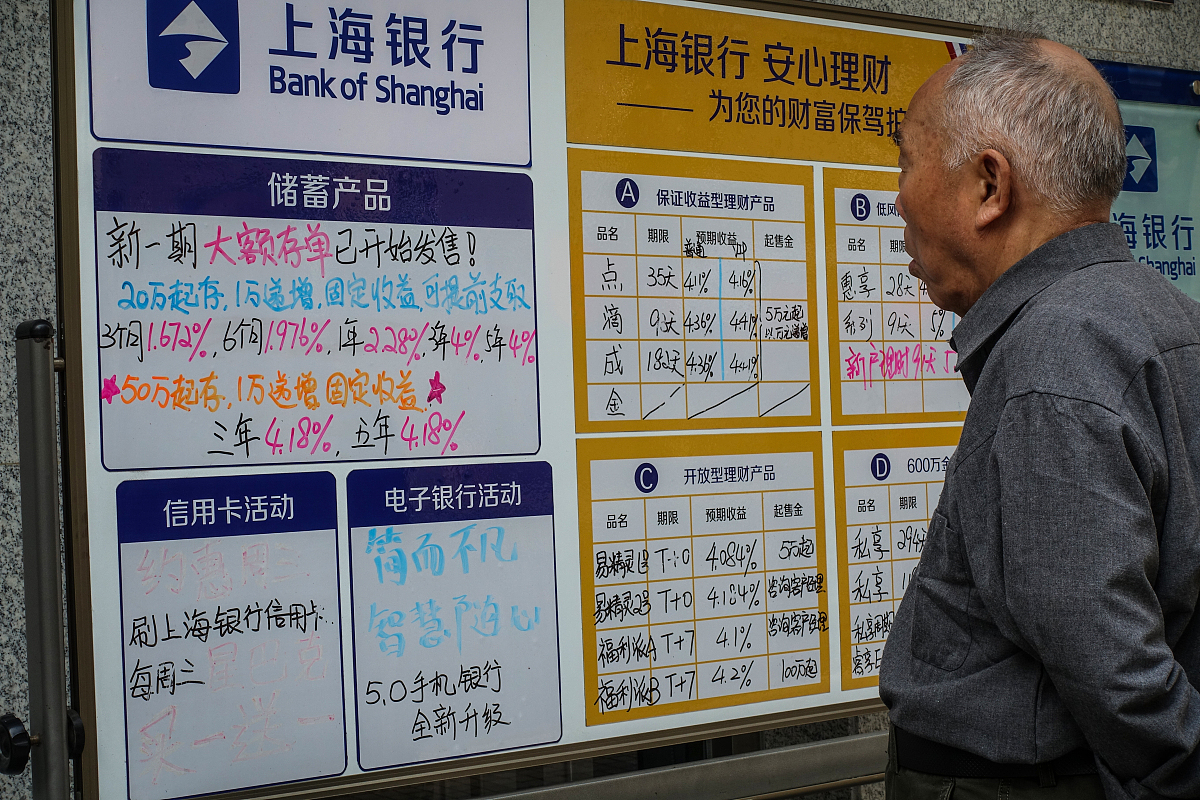 上海银行
Bank of Shanghai
储蓄产品
新一期大额存单已开始发售!
20万起存,1万递增,固定收益,可提前支取
3个月1.672%,6个月1.976%,1年2.28%,3年4%,5年4%
★50万起存,1万递增 固定收益★
三年4.18%,五年4.18%
信用卡活动
约惠周三
刷上海银行信用卡
每周三
买一送一
电子银行活动
简而不凡
智慧随心
5.0手机银行
全新升级
上海银行 安心理财
——为您的财富保驾护
A 保证收益型理财产品
品名 期限 预期收益 起售金
普通
点 35天 4.1% 4.16%
滴 4.36% 4.41% 5万元起
成 182天 4.36% 4.41%
金
B 低风
品名 期限
惠享 28天
系列 91天 5%
C 开放型理财产品
品名 期限 预期收益 起售金
易精灵1号 T+0 4.084% 5万起
易精灵2号 T+0 4.184% 咨询客户经理
福利派A T+7 4.1% 咨询客户经理
福利派B T+7 4.2% 100万起
D 600万金
品名 期限
私享 294天
私享
海银行
Shanghai